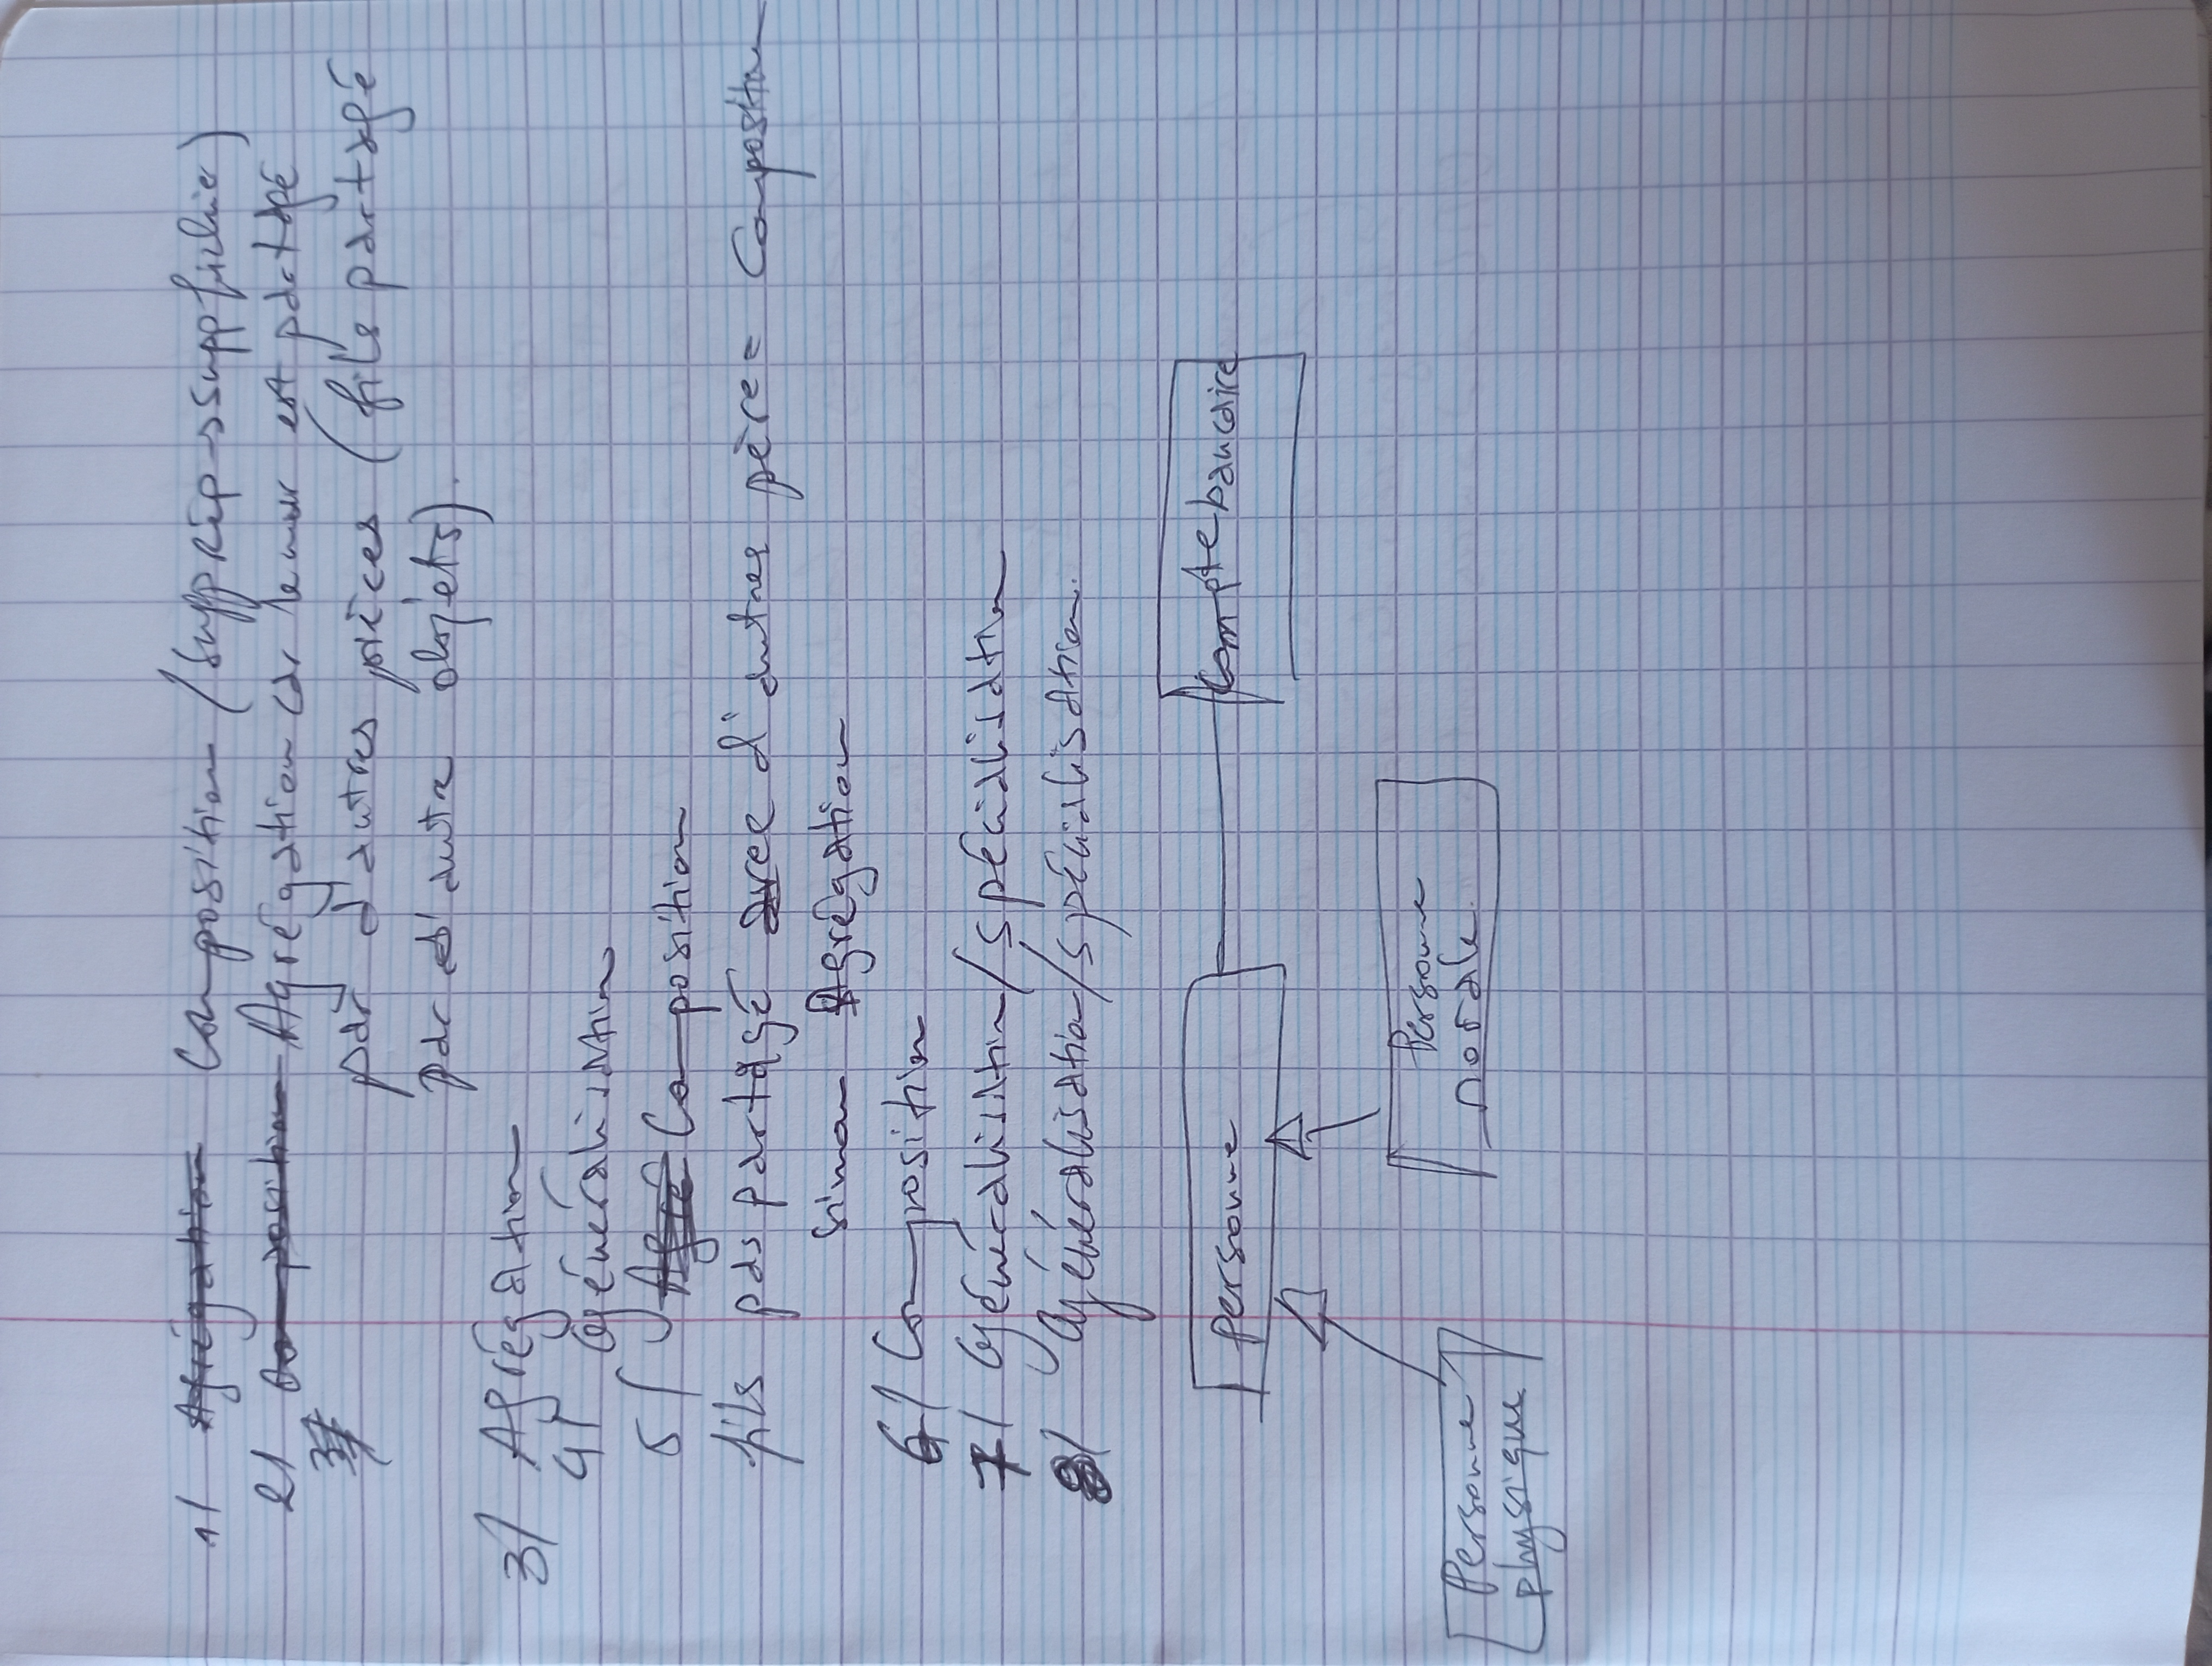 1/ Agrégation Composition (supp rép → supp fichier)
2/ Composition Agrégation car le mur est partagé
3/ par d'autres pièces (fils partagé
par d'autre objets).
3/ Agrégation
4/ Généralisation
5/ Agré Composition
fils pas partagé avec d'autres père = Composition
sinon Agrégation
6/ Composition
7/ Généralisation/spécialisation
8/ Généralisation/spécialisation.
Personne
Compte bancaire
Personne
Morale
Personne
physique